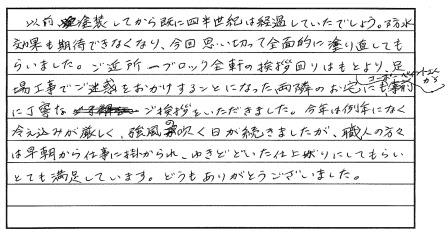 以前塗装してから既に四半世紀は経過していたでしょう。防水
効果も期待できなくなり、今回思い切って全面的に塗り直しても
らいました。ご近所一ブロック全軒の挨拶回りはもとより、足
場工事でご迷惑をおかけすることになった両隣のお宅にも事前
に丁寧なご挨拶をいただきました。今年は例年になく
冷え込みが厳しく、強風の吹く日が続きましたが、職人の方々
は早朝から仕事に掛かられ、ゆきとどいた仕上がりにしてもらい
とても満足しています。どうもありがとうございました。